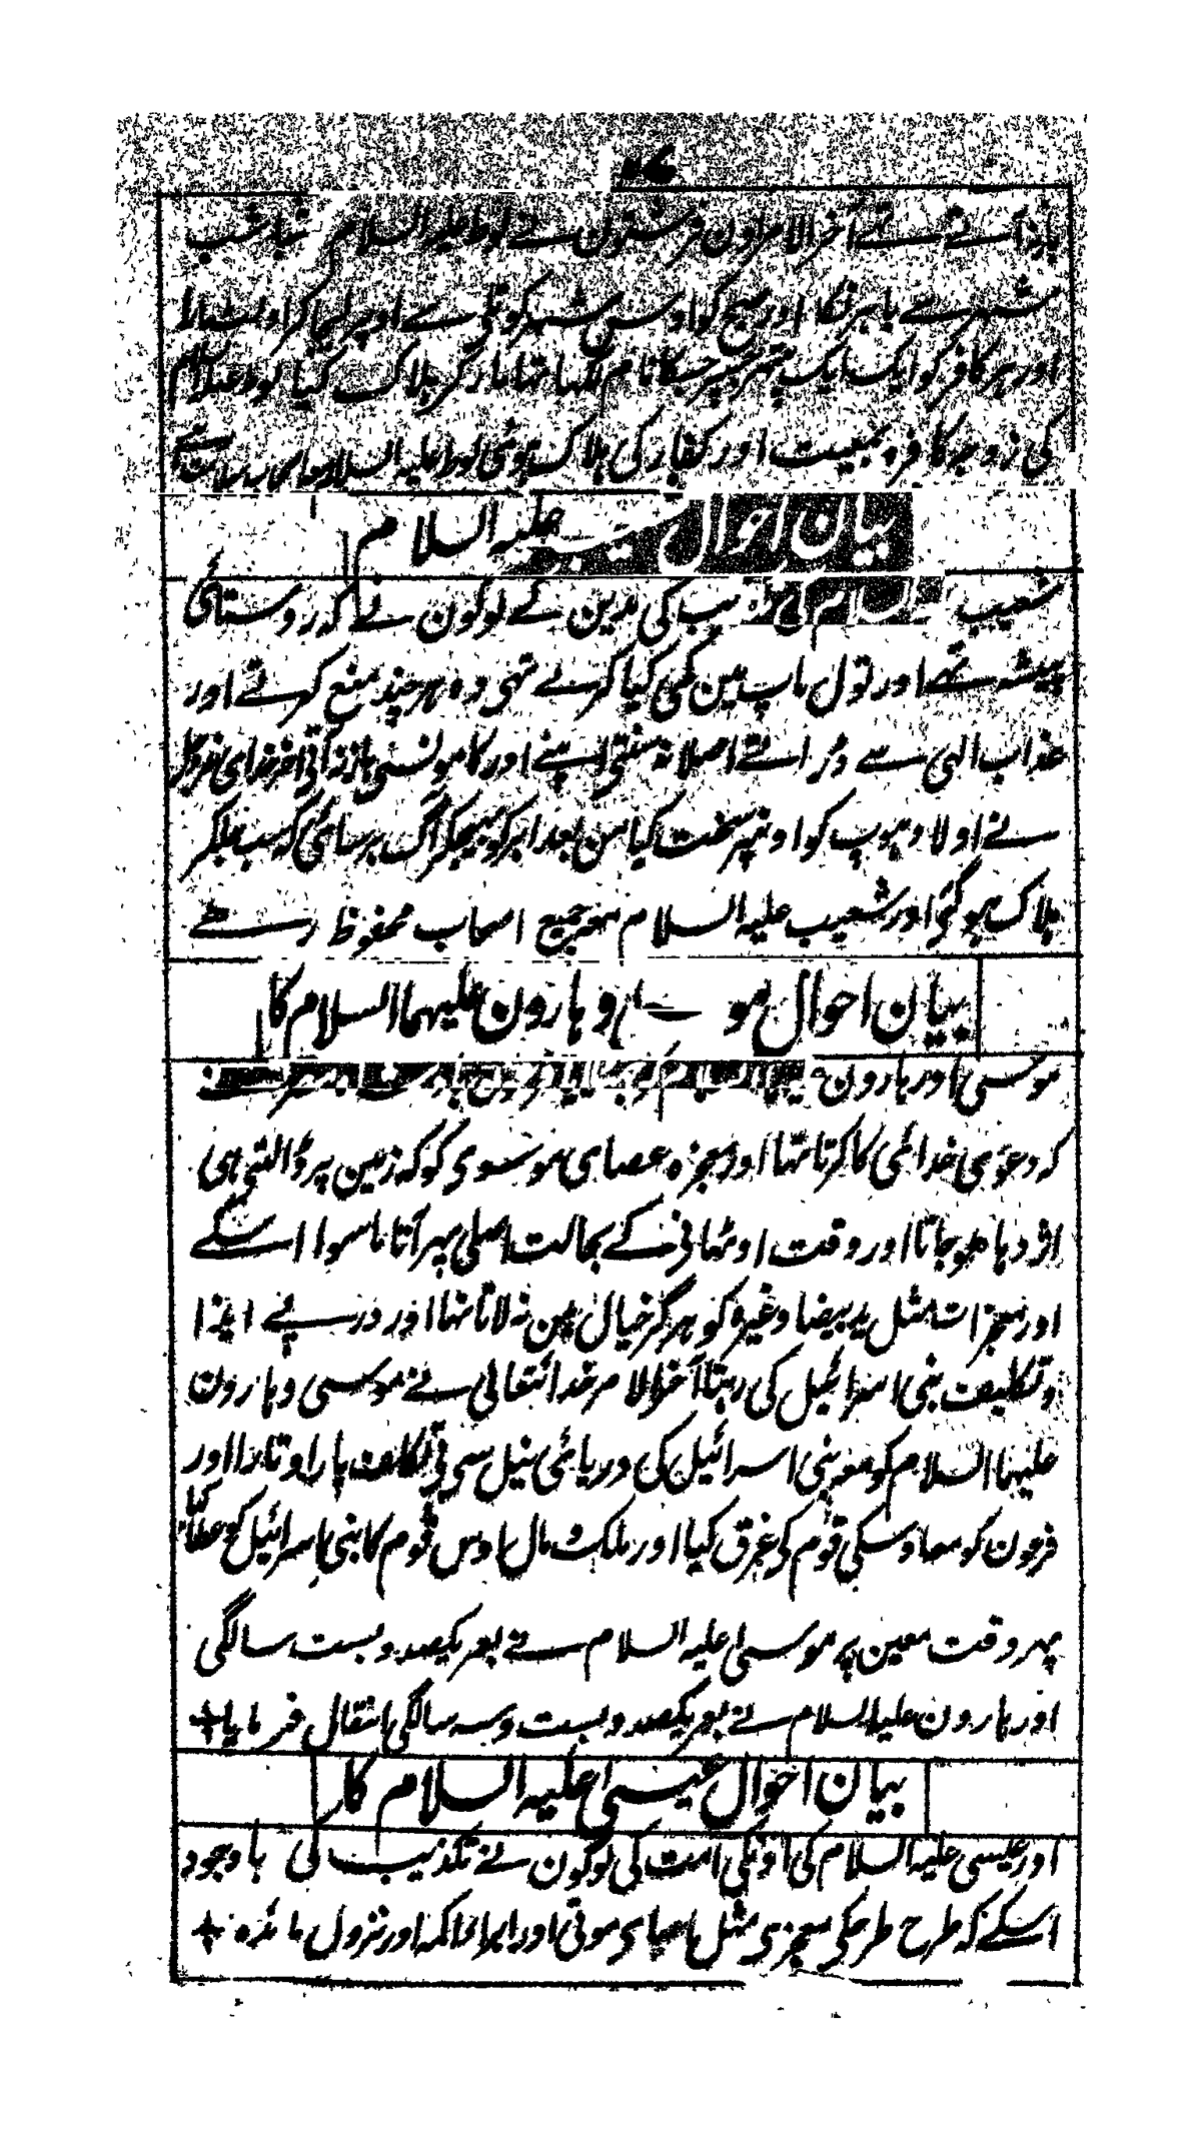 آخر الامر اون فرشتون نے لوط علیہ السلام
شہر سے باہر نکا اور صبح کو اوس شہر کو تلی سے اوپر لیجا کر
اور ہر کافر کو ایک ایک پتھر جسپر جسکا نام لکھا تھا مار کر ہلاک کیا لوط
کی زوجہ کافرہ بمعیت اور کفار کی ہلاک ہوئی لوط علیہ السلام
بیان احوال علیہ السلام
شعیب کی مدین کے لوگون نے کہ روستائی
پیشہ تھے اور تول ماپ مین کمی کیا کرتے تہی وہ ہر چند منع کرتے اور
عذاب الہی سے ڈراتے اصلا نہ سنتی اپنے اور کامونسی باز نہ آتی آخر خدای
نے اولا دہوپ کو اونپر سخت کیا من بعد ابر کو بہیجکر آگ برسائی کہ سب جلکر
ہلاک ہو گئی اور شعیب علیہ السلام مع جمیع اصحاب محفوظ رہے
بیان احوال مو سے و ہارون علیہما السلام کا
موسی اور ہارون
کہ دعوی خدائی کا کرتا تھا اور معجزہ عصای موسوی کو کہ زمین پر ڈالتی ہی
اژدہا ہو جاتا اور وقت اوٹھانی کے بحالت اصلی پہر آتا ماسوا اسکے
اور معجزات مثل ید بیضا وغیرہ کو ہرگز خیال مین نہ لاتا تھا اور درپئے ایذا
و تکلیف بنی اسرائیل کی رہتا آخر الامر خدائتعالی نے موسی و ہارون
علیہما السلام کو مع بنی اسرائیل کی دریائی نیل سی بی تکلف پار اوتارا اور
فرعون کو معہ اوسکی قوم کی غرق کیا اور ملک و مال اوس قوم کا بنی اسرائیل کو عطا کیا
پہر وقت معین پر موسی علیہ السلام نے بعمر یکصد و بست سالگی
اور ہارون علیہ السلام نے بعمر یکصد و بست و سہ سالگی انتقال فرمایا
بیان احوال عیسی علیہ السلام کا
اور عیسی علیہ السلام کی اونکی امت کی لوگون نے تکذیب کی باوجود
اسکے کہ طرح طرحکی معجزی مثل احیای موتی اور ابراء اکمہ اور نزول مائدہ